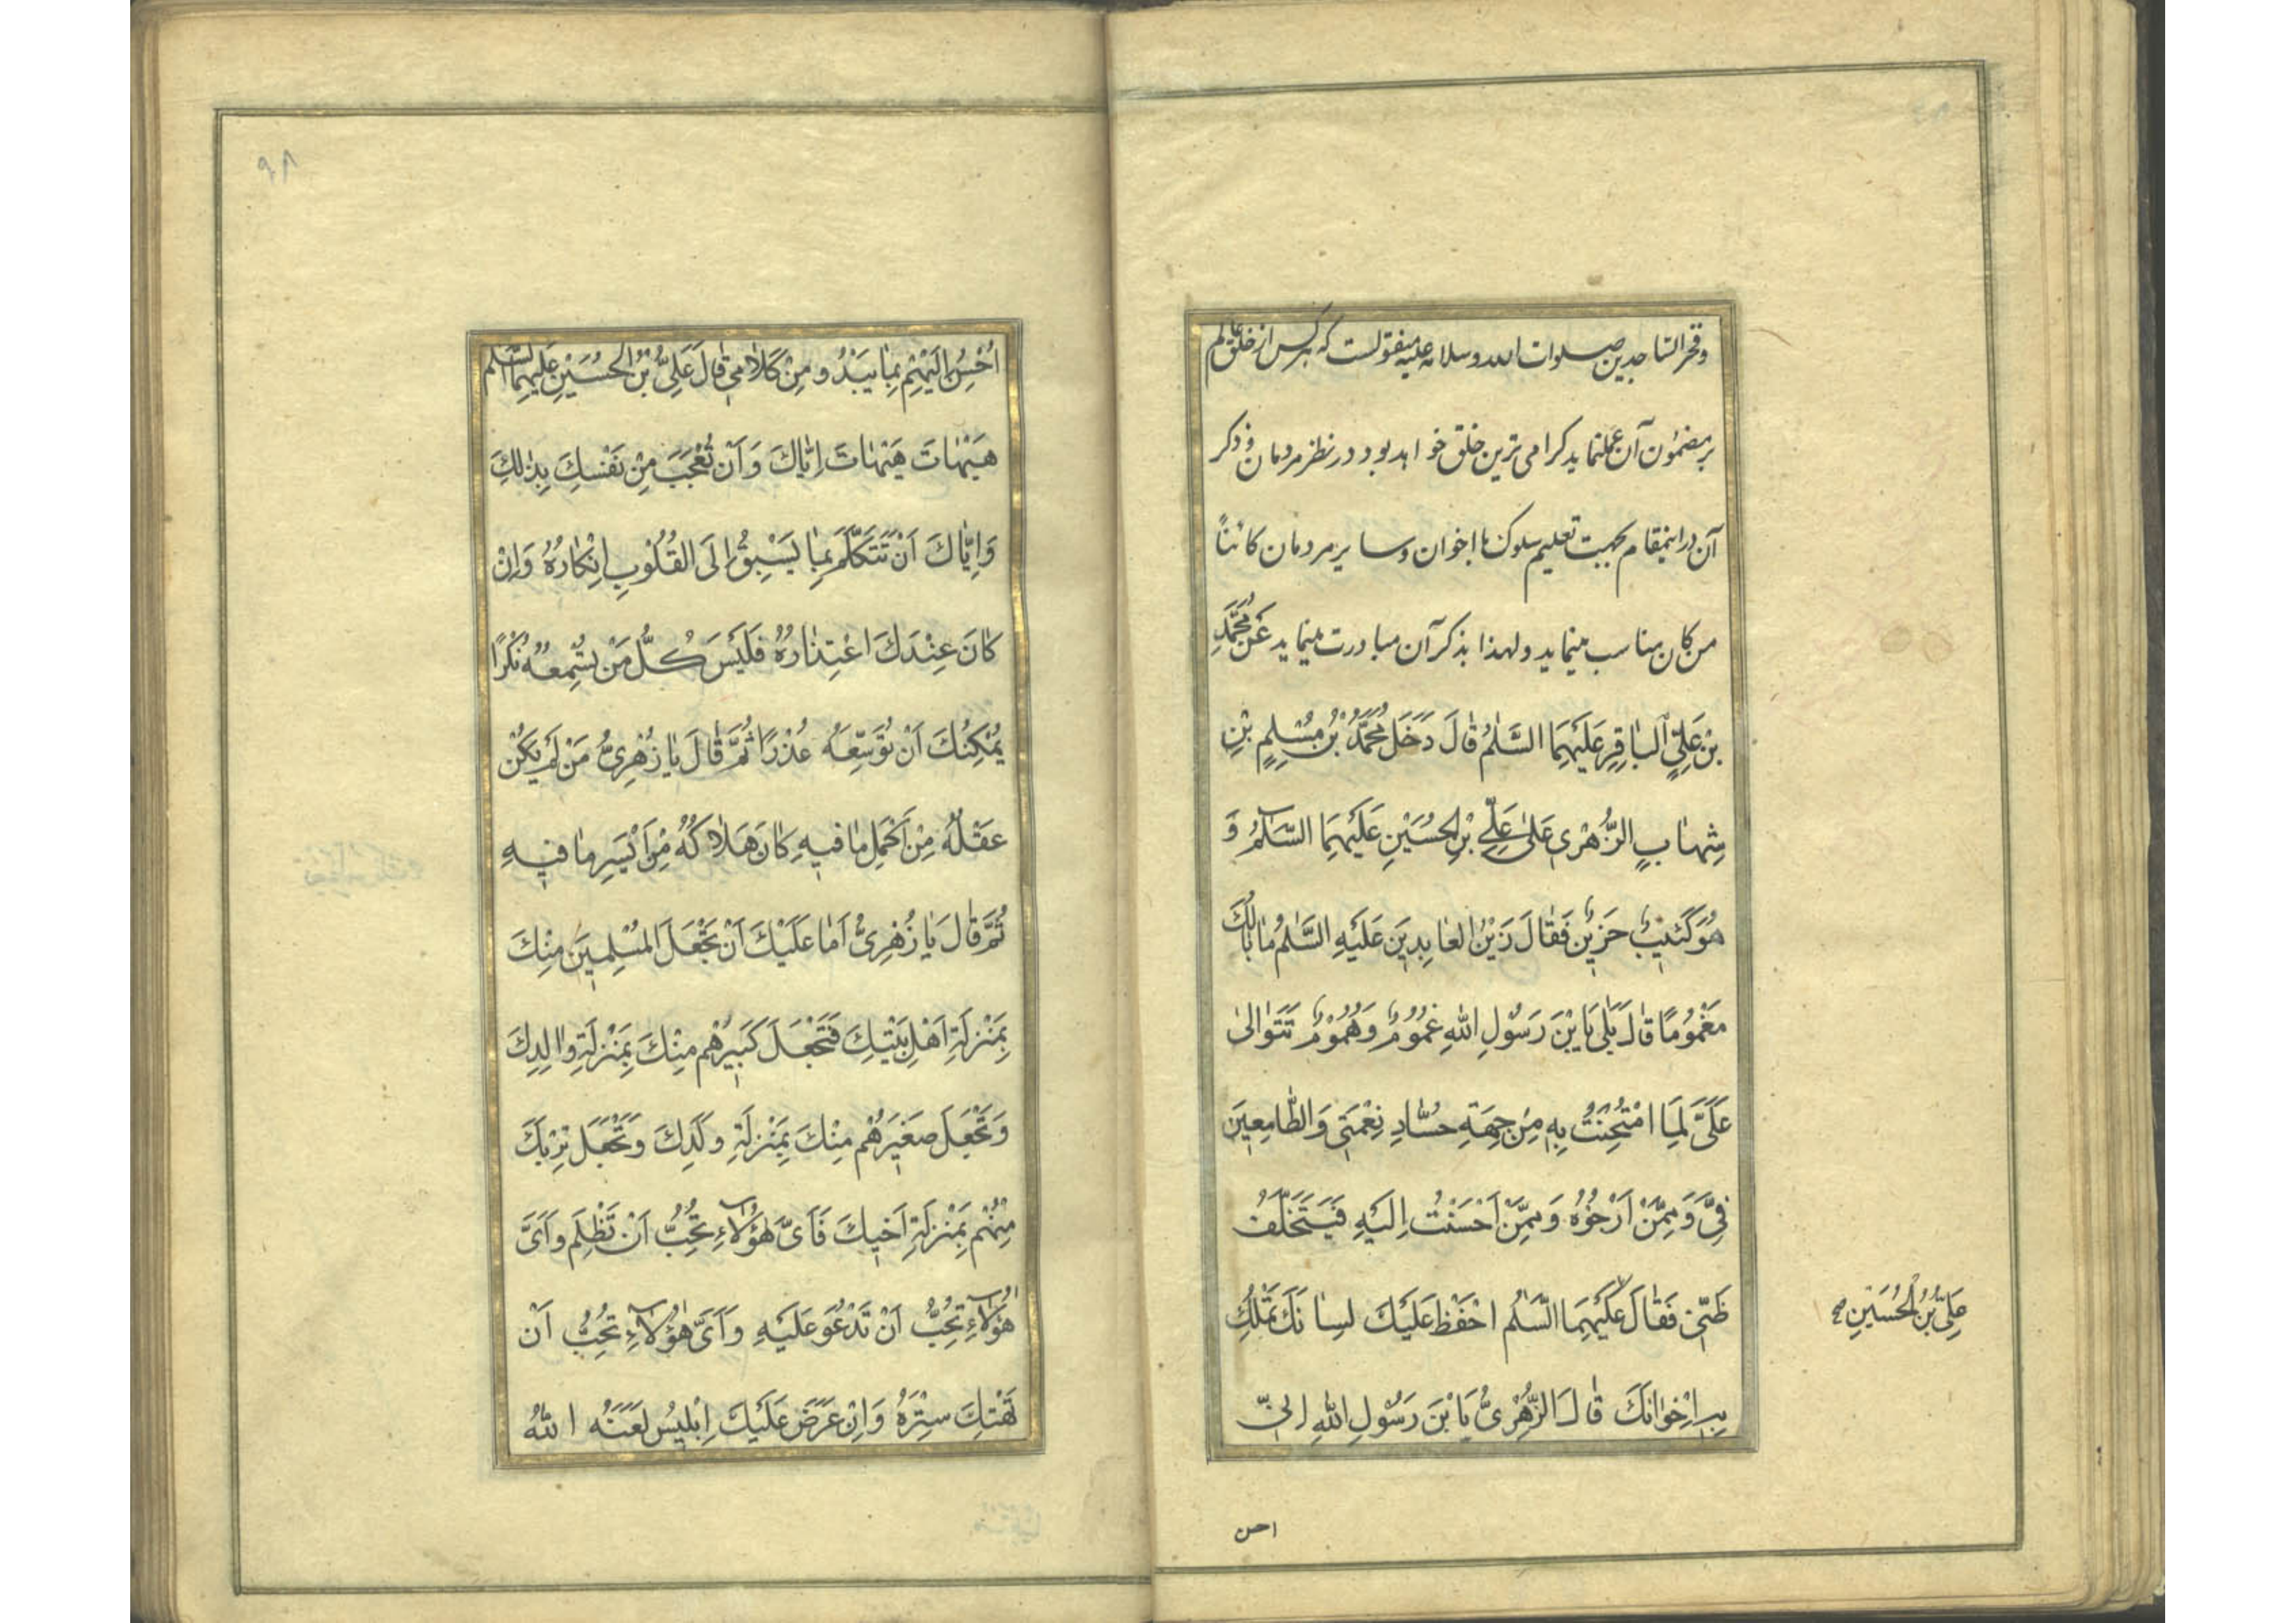 وفخر الساجدین صلوات الله وسلامه علیه منقولست که هر کس از خلق عالم
بر مضمون آن عمل نماید کرامی ترین خلق خواهد بود در نظر مردمان و ذکر
آن در اینمقام بجهت تعلیم سلوک با اخوان و سایر مردمان کائناً
من کان مناسب مینماید ولهذا بذکر آن مبادرت مینماید عَنْ مُحَمَّدِ
بْنِ عَلِیٍّ الْبٰاقِرِ عَلَیْهِمَا السَّلٰمُ قٰالَ دَخَلَ مُحَمَّدُ بْنُ مُسْلِمِ بْنِ
شِهٰابٍ الزُّهْرِی عَلیٰ عَلِیِّ بْنِ الْحُسَیْنِ عَلَیْهِمَا السَّلٰمُ وَ
هُوَ کَئیبٌ حَزینٌ فَقٰالَ زَیْنُ الْعٰابِدینَ عَلَیْهِ السَّلٰمُ مٰا بٰالُکَ
مَغْمُومًا قٰالَ بَلٰی یَا بْنَ رَسُولِ اللّٰهِ غُمُومٌ وَهُمُومٌ تَتَوٰالیٰ
عَلَیَّ لِمَا امْتُحِنْتُ بِهِ مِنْ جِهَةِ حُسّٰادِ نِعْمَتی وَالطّٰامِعینَ
فِیَّ وَمِمَّنْ اَرْجُوهُ وَمِمَّنْ اَحْسَنْتُ اِلَیْهِ فَیَتَخَلَّفُ
ظَنّی فَقٰالَ عَلَیْهِمَا السَّلٰمُ احْفَظْ عَلَیْکَ لِسٰانَکَ تَمْلِکُ
بِهِ اِخْوٰانَکَ قٰالَ الزُّهْرِیُّ یَا بْنَ رَسُولِ اللّٰهِ اِنّی
عَلِیُّ بْنُ الْحُسَیْنِ صح
احسن
٩٨
اُحْسِنُ اِلَیْهِمْ بِمٰا یَبْدُو مِنْ کَلٰامی قٰالَ عَلِیُّ بْنُ الْحُسَیْنِ عَلَیْهِمَا السَّلٰم
هَیْهٰاتَ هَیْهٰاتَ اِیّٰاکَ وَاَنْ تُعْجَبَ مِنْ نَفْسِکَ بِذٰلِکَ
وَاِیّٰاکَ اَنْ تَتَکَلَّمَ بِمٰا یَسْبِقُ اِلَی الْقُلُوبِ اِنْکٰارُهُ وَاِنْ
کٰانَ عِنْدَکَ اعْتِذٰارُهُ فَلَیْسَ کُلُّ مَنْ تُسْمِعُهُ نُکْرًا
یُمْکِنُکَ اَنْ تُوَسِّعَهُ عُذْرًا ثُمَّ قٰالَ یٰا زُهْرِیُّ مَنْ لَمْ یَکُنْ
عَقْلُهُ مِنْ اَکْمَلِ مٰا فیهِ کٰانَ هَلٰاکُهُ مِنْ اَیْسَرِ مٰا فیهِ
ثُمَّ قٰالَ یٰا زُهْرِیُّ اَمٰا عَلَیْکَ اَنْ تَجْعَلَ الْمُسْلِمینَ مِنْکَ
بِمَنْزِلَةِ اَهْلِ بَیْتِکَ فَتَجْعَلَ کَبیرَهُمْ مِنْکَ بِمَنْزِلَةِ وٰالِدِکَ
وَتَجْعَلَ صَغیرَهُمْ مِنْکَ بِمَنْزِلَةِ وَلَدِکَ وَتَجْعَلَ تِرْبَکَ
مِنْهُمْ بِمَنْزِلَةِ اَخیکَ فَاَیَّ هٰؤُلٰاءِ تُحِبُّ اَنْ تَظْلِمَ وَاَیَّ
هٰؤُلٰاءِ تُحِبُّ اَنْ تَدْعُوَ عَلَیْهِ وَاَیَّ هٰؤُلٰاءِ تُحِبُّ اَنْ
تَهْتِکَ سِتْرَهُ وَاِنْ عَرَضَ عَلَیْکَ اِبْلیسُ لَعَنَهُ اللّٰهُ